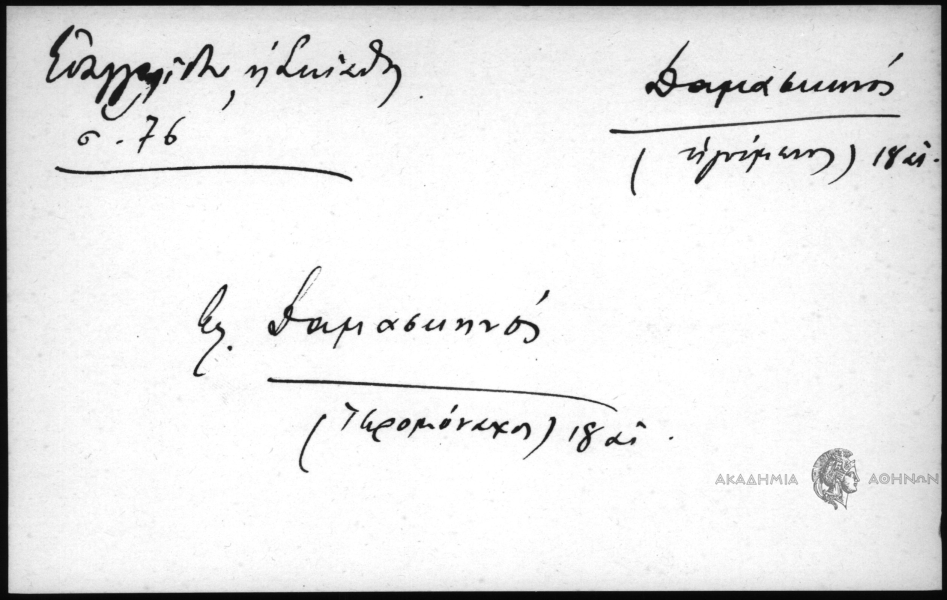 Εὐαγγελίστρ, ἡ Σκιάθῳ
σ. 76
Δαμασκηνός
(ἡγούμενος) 18 αἰ.
Βλ. Δαμασκηνός
(Ἱερομόναχος) 18 αἰ.
ΑΚΑΔΗΜΙΑ ΑΘΗΝΩΝ